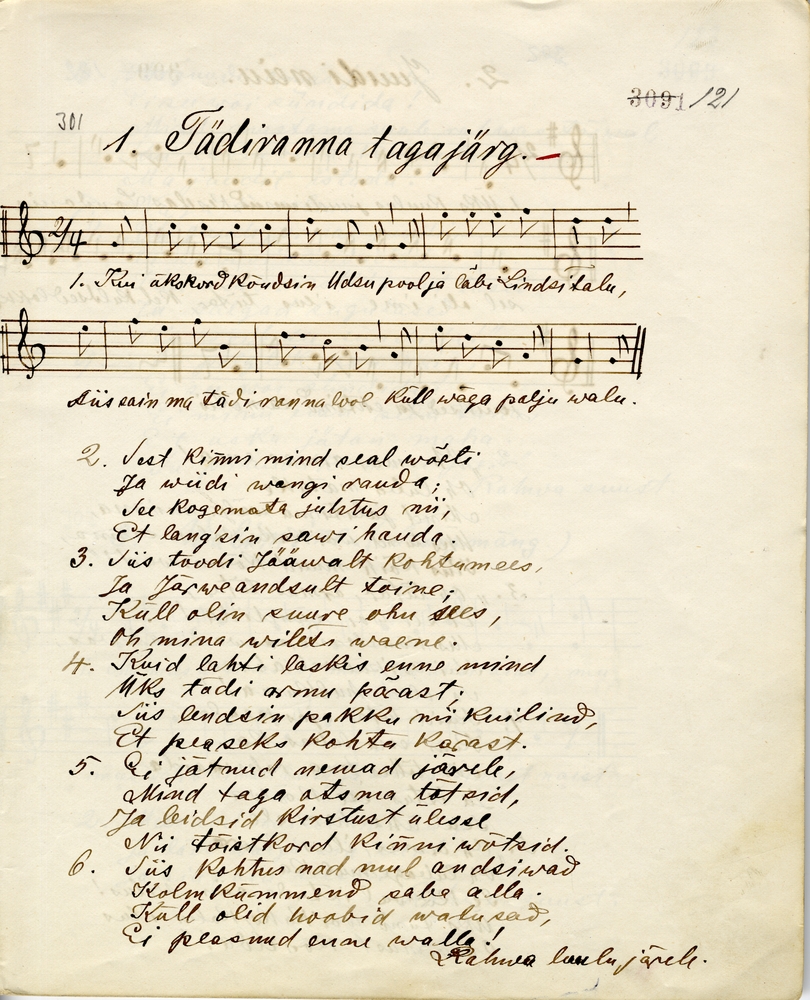 3091/121
301
1. Tädiranna tagajärg.
2/4
1. Kui ükskord kõndsin Udsu pool ja läbi Lindsi talu,
Siis sain ma tädi rannal wool Küll wäga palju walu.
2. Sest kinni mind seal wõeti
Ja wiidi wangi randa;
See kogemata juhtus nii,
Et lang'sin sawi handa.
3. Siis toodi Jääwalt kohtumees,
Ja Järweandsult tõine;
Küll olin suure ohu sees,
Oh mina wilets waene.
4. Kuid lahti laskis enne mind
Üks tädi armu pärast;
Siis lendsin pakku nii kui lind,
Et peaseks kohtu kärast.
5. Ei jätnud nemad järele,
Mind taga otsma tõtsid,
Ja leidsid kirstust ülesse
Nii tõistkord kinni wõtsid.
6. Siis kohtus nad mul andsiwad
Kolmkümmend saba alla.
Küll olid hoobid walusad,
Ei peasnud enne walla!
Rahwa luulu järele.